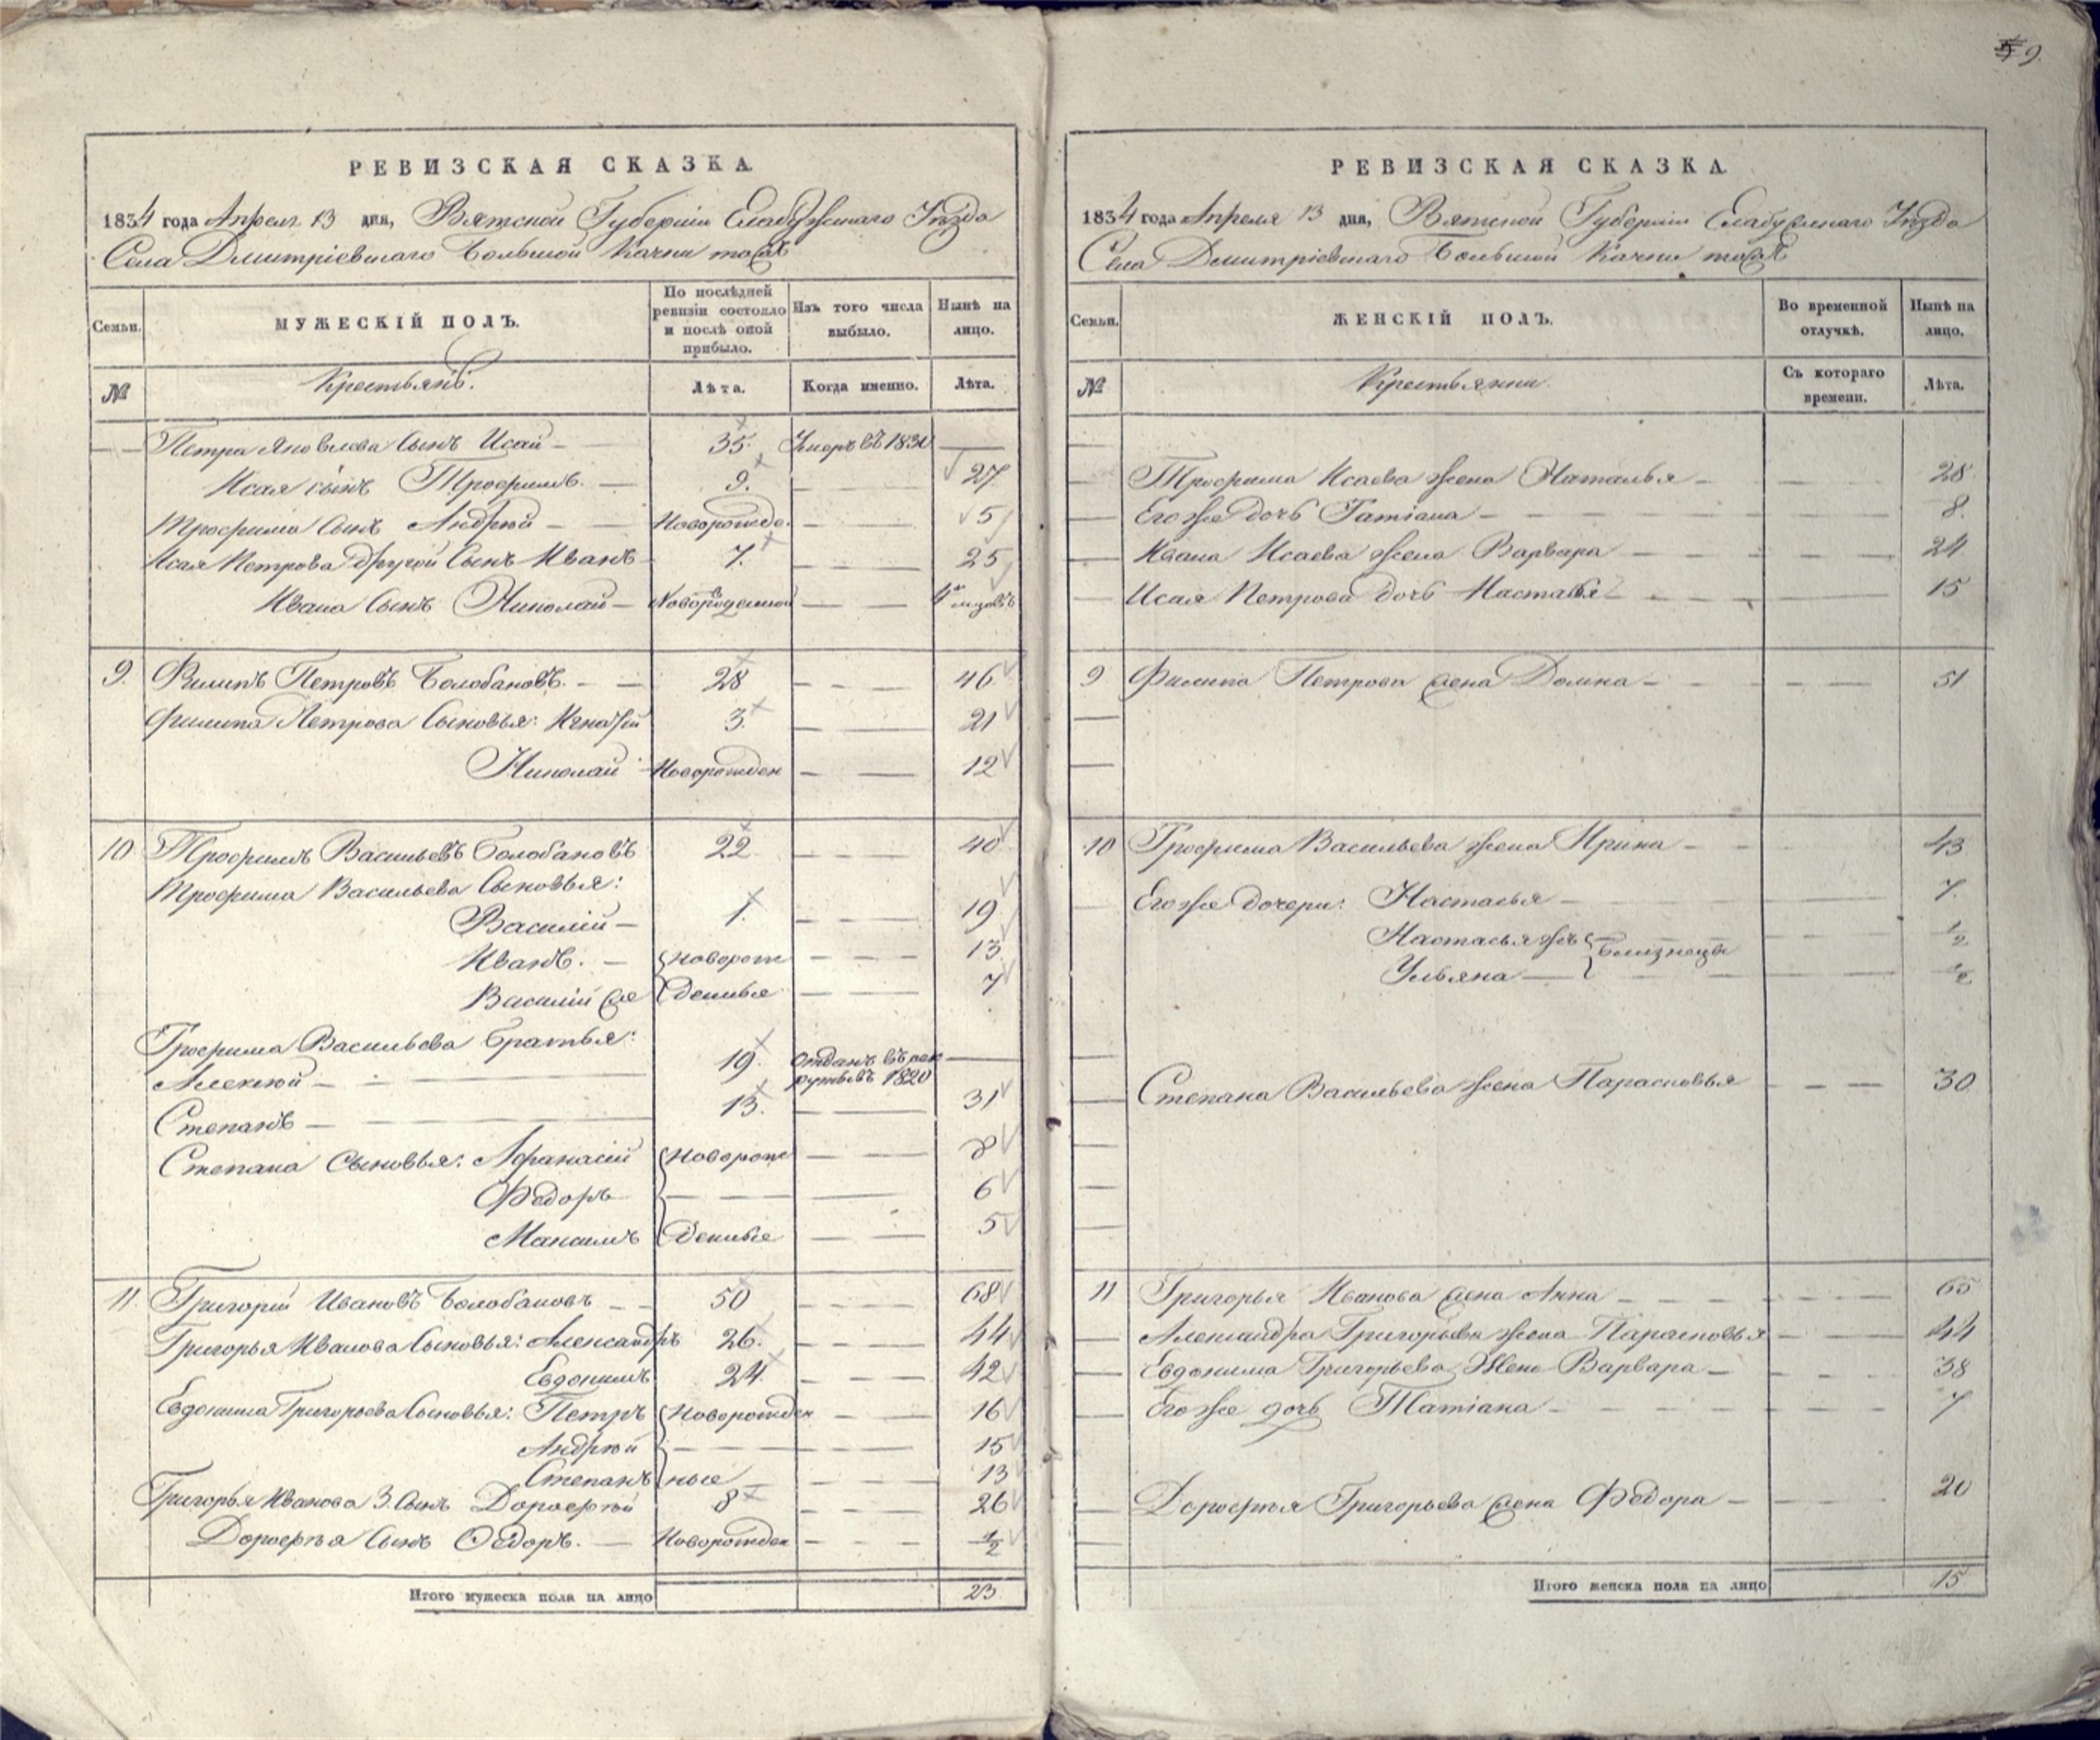 9
РЕВИЗСКАЯ СКАЗКА.
1834 года Апреля 13 дня, Вятской Губерніи Елабужскаго Уѣзда
Села Дмитріевскаго Большой Качки тожъ
Семьи.
МУЖЕСКІЙ ПОЛЪ.
По послѣдней ревизіи состояло и послѣ оной прибыло.
Изъ того числа выбыло.
Нынѣ на лицо.
№
Крестьянъ.
Лѣта.
Когда именно.
Лѣта.
Петра Яковлева Сынъ Исай 35. Умеръ въ 1830
Исая сынъ Трофимъ. 9. 27
Трофима Сынъ Андрѣй Новорожде. 5
Исая Петрова другой Сынъ Иванъ 7. 25
Ивана Сынъ Николай Новорожденной 4х мѣсяцовъ
9. Филипъ Петровъ Болобановъ. 28 46
Филипа Петрова Сыновья: Игнатій 3. 21
Николай Новорожден 12
10 Трофимъ Васильевъ Болобановъ 22 40
Трофима Васильева Сыновья:
Василій 1. 19
Иванъ. Новорож 13
Василій же денные 7
Трофима Васильева братья:
Алексѣй 19. отданъ въ рекрутывъ 1820
Степанъ 13. 31
Степана Сыновья: Афанасій Новорож 8
Ѳедоръ 6
Максимъ денные 5
11. Григорій Ивановъ Болобановъ 50 68
Григорья Иванова Сыновья: Александръ 26. 44
Евдокимъ 24 42
Евдокима Григорьева Сыновья: Петръ Новорожден 16
Андрѣй 15
Степанъ ные 13
Григорья Иванова 3. Сынъ Дорофѣй 8 26
Дорофѣя Сынъ Ѳедоръ. Новорожден 1/2
Итого мужеска пола на лицо 23.
РЕВИЗСКАЯ СКАЗКА.
1834 года Апреля 13 дня, Вятской Губерніи Елабужскаго Уѣзда
Села Дмитріевскаго Большой Качки тожъ
Семьи.
ЖЕНСКІЙ ПОЛЪ.
Во временной отлучкѣ.
Нынѣ на лицо.
№
Крестьянки
Съ котораго времени.
Лѣта.
Трофима Исаева жена Наталья 28
Его же дочь Татіана 8.
Ивана Исаева жена Варвара 24
Исая Петрова дочь Настасья 15
9 Филипа Петрова жена Домна 51
10 Трофима Васильева жена Ирина 43
Его же дочери: Настасья 7.
Настасья жъ близнецы 1/2
Ульяна 1/2
Степана Васильева жена Парасковья 30
11 Григорья Иванова жена Анна 65
Александра Григорьева жена Парасковья 44
Евдокима Григорьева Жена Варвара 38
Его же дочь Татіана 7
Дорофѣя Григорьева жена Ѳедора 20
Итого женска пола на лицо 15